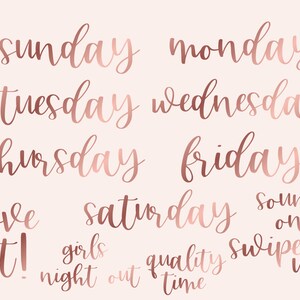 sunday monday
tuesday wednesday
thursday friday
saturday
girls
night out
quality
time
swipe
on